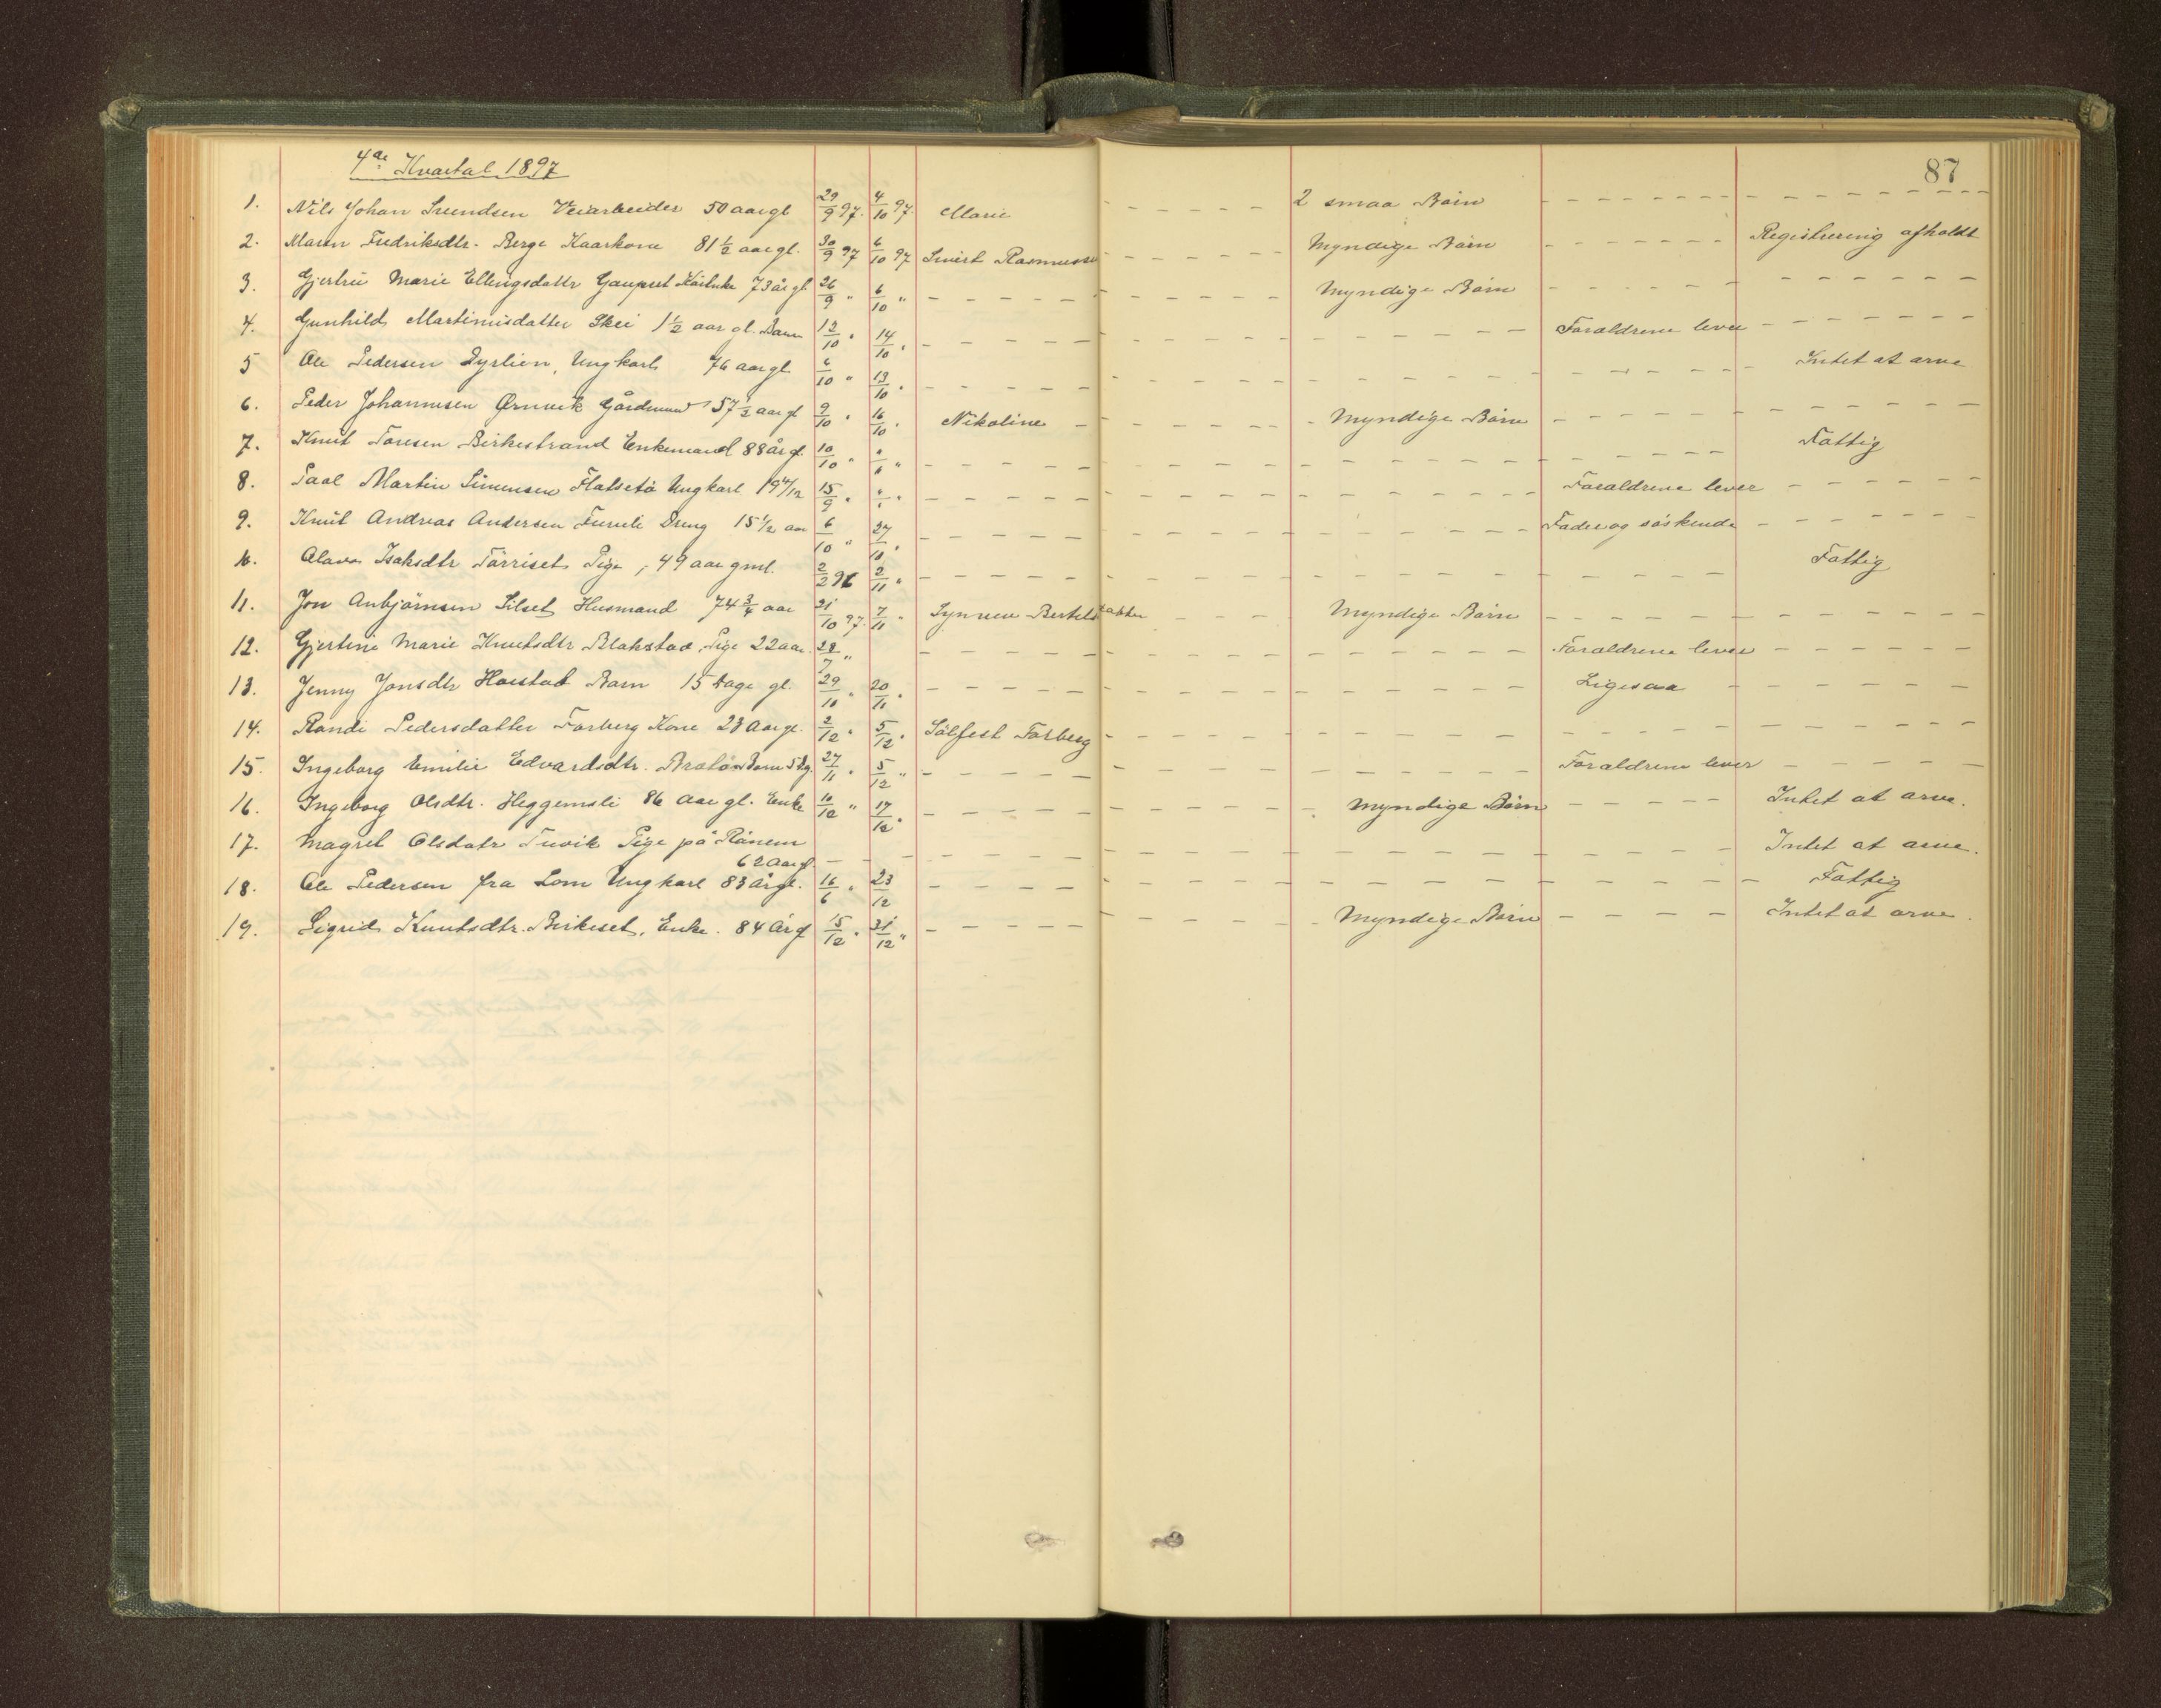 87
4de Kvartal 1897
1. Nils Johan Svendsen Veiarbeider 50 aar gl 29/9 97. 4/10 97. Marie - - - - - 2 smaa Børn - - - - - - - - - - - -
2. Maren Fredriksdtr. Berge Kaarkone 81 1/2 aar gl. 30/9 97 6/10 97 Sivert Rasmussen - - - - - Myndige Børn - - - - - - Registrering afholdt
3. Gjertru Marie Ellingsdattr Gaupset 73 år gl 26/9 " 6/10 " - - - - - Myndige Børn - - - - - - - - - -
4. Gunhild Martinusdatter Skei 1 1/2 aar gl. Barn 12/10 " 14/10 " - - - - - - - Forældrene lever - - - - - -
5 Ole Pedersen Dyrlien, Ungkarl 76 aar gl 6/10 " 13/10 " - - - - - - - - - - - Intet at arve
6. Peder Johannesen Ørnvik Gårdmand 57 1/2 aar gl 9/10 " 16/10 " Nikoline - - - - - Myndige Børn - - - - - - - - - -
7. Knut Toresen Birkestrand Enkemand 88 år gl. 10/10 " "/" " - - - - - - - - - - - Fattig
8. Paal Martin Simensen Flatsetø Ungkarl 19 4/12 15/9 " "/" " - - - - - - - - - Forældrene lever - - - - - -
9. Knut Andreas Andersen Furuli Dreng 15 1/2 aar 6/10 " 27/10 " - - - - - - - - - Fader og søskende - - - - - -
10. Olava Isaksdtr Tørriset Pige, 49 aar gml. 2/2 96 2/11 " - - - - - - - - - - - Fattig
11. Jon Anbjørnsen Silset Husmand 74 3/4 aar 21/10 97. 7/11 " Synnev Bertelsdatter - - - Myndige Børn - - - - - - - - - -
12. Gjertine Marie Knutsdtr Blakstad, Pige 22 aar. 28/7 " - - - - - - - - - Forældrene lever - - - - - -
13. Jenny Jonsdtr Harstad Barn 15 dage gl. 29/10 " 20/11 " - - - - - - - - - Ligesaa - - - - - -
14. Randi Pedersdatter Farberg Kone 23 Aar gl. 2/12 " 5/12 " Sølfest Farberg - - - - - - - - - - - - - -
15. Ingeborg Emilie Edvardsdtr. Barn 5 Dg. 27/11 " 5/12 " - - - - - - - - - Forældrene lever - - - - - -
16. Ingeborg Olsdtr. Heggemsli 86 Aar gl. Enke 10/12 " 17/12 " - - - - - Myndige Børn - - - - Intet at arve.
17. Magret Olsdatr Tuvik Pige på Rånem
62 Aar gl. - - - - - - - - - - - - Intet at arve.
18. Ole Pedersen fra Lom Ungkarl 83 år gl. 16/6 " 23/12 - - - - - - - - - - - Fattig
19. Sigrid Knutsdtr. Birkeset, Enke. 84 År gl 15/12 " 31/12 " - - - - - Myndige Børn - - - - Intet at arve.